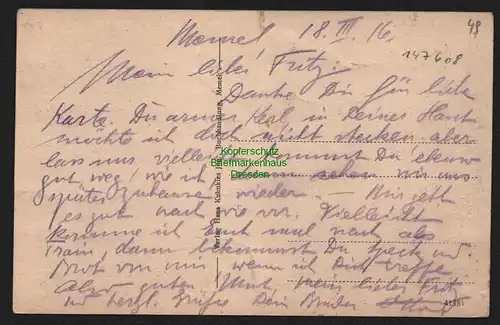 Memel, 18. III. 16.
49
147608
Mein lieber Fritz.
Danke Dir für liebe
Karte. Du armer Kerl, in Deines Haut
möchte ich doch nicht stecken aber
lass nur vielleicht kommst Du ebenso
gut weg, wie ich, dann sehen wir uns
später zuhause wieder. — Mir geht
es gut nach wie vor. Vielleicht
komme ich auch mal nach als
dann bekommst Du Speck u.
Brot von mir, wenn ich Dich treffe.
Also guten Mut, mein lieber Fritz
u. herzl. Grüße Dein Bruder Otto
Verlag Hans Kuhnkies Buchhandlung, Memel
Kopferschutz
Briefmarkenhaus
Dresden
41385